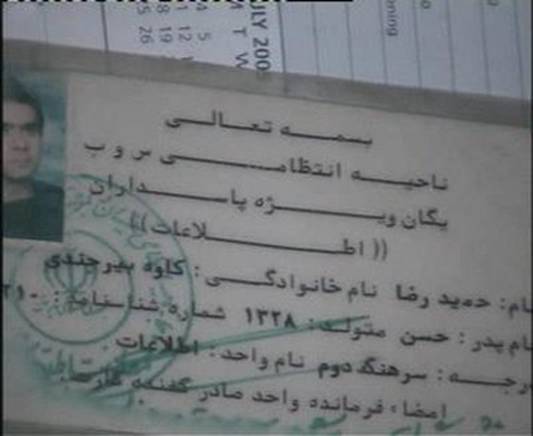 JULY 200
T W
5
12
19
26
بسمه تعالی
ناحیه انتظامی س و ب
یگان ویژه پاسداران
((اطلاعات))
نام: حمید رضا نام خانوادگی: کاوه بیرجندی
نام پدر: حسن متولد: ۱۳۲۸ شماره شناسنامه:
درجه: سرهنگ دوم نام واحد: اطلاعات
امضاء فرمانده واحد صادر کننده کارت